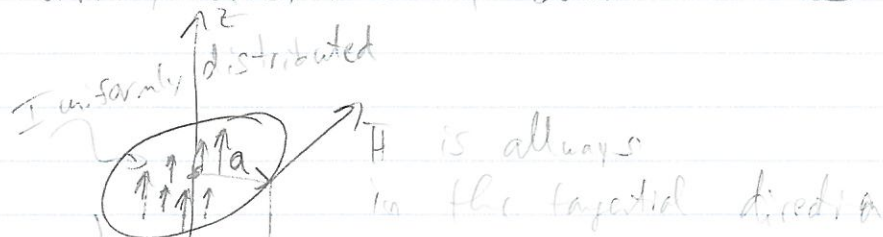 z
I uniformly distributed
a
H is allways
in the tagential direction